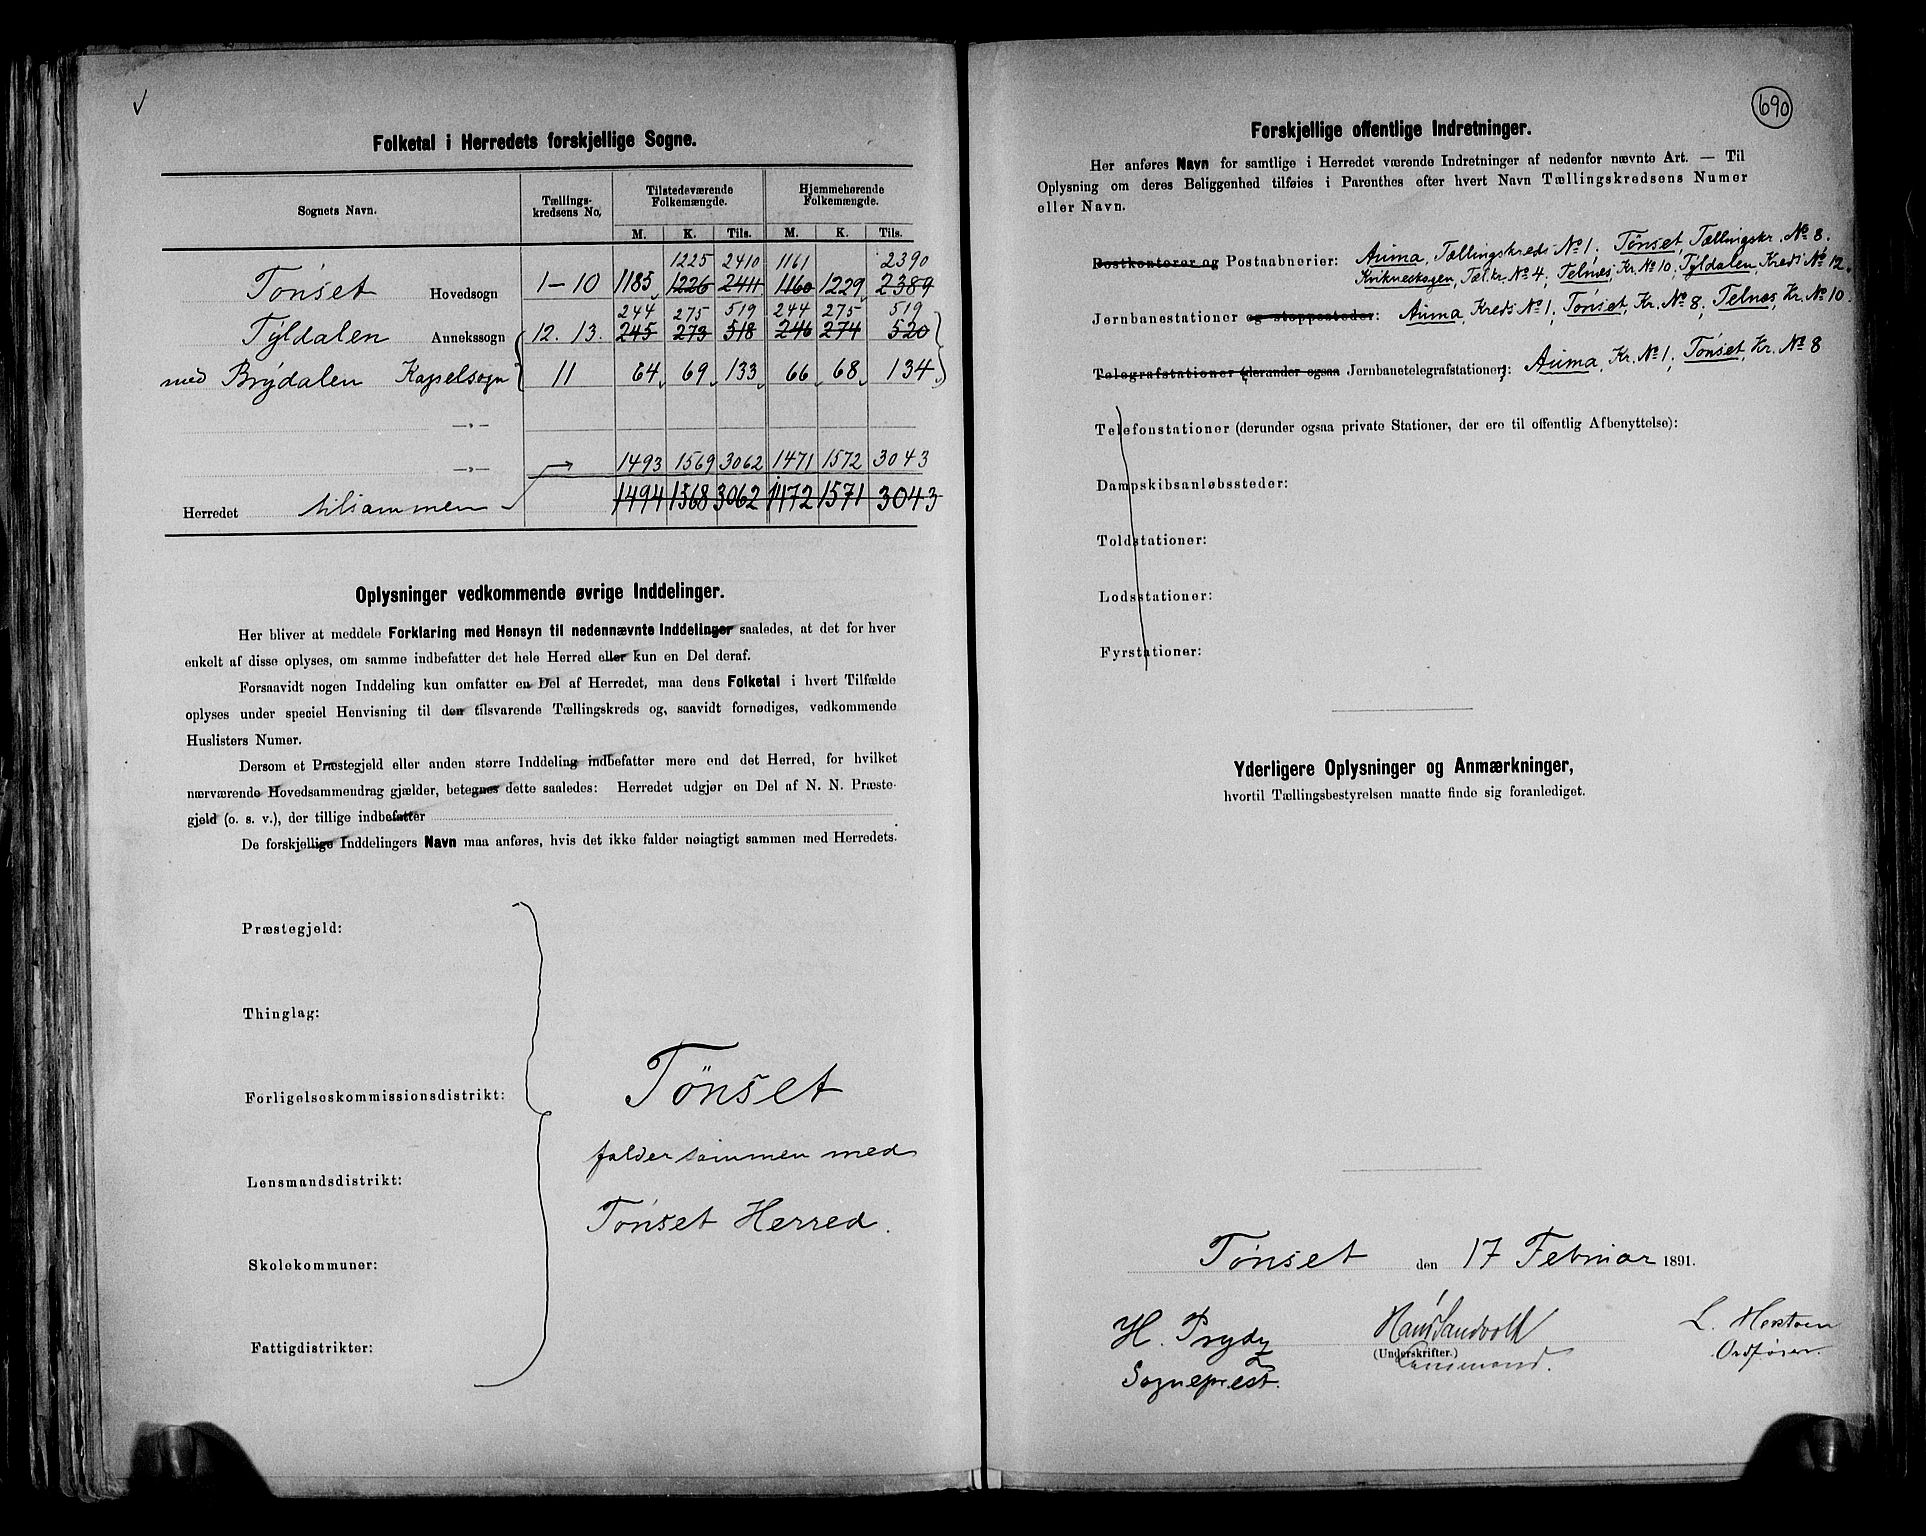 ✓
Folketal i Herredets forskjellige Sogne.
Sognets Navn. Tællings- kredsens No. Tilstedeværende Folkemængde. Hjemmehørende Folkemængde.
M. K. Tils. M. K. Tils.
1225 2410 1161 2390
Tönset Hovedsogn 1-10 1185 1226 2411 1160 1229 2389
244 275 519 244 275 519
Tyldalen Annekssogn 12. 13. 245 273 518 246 274 520
med Brydalen Kapelsogn 11 64 69 133 66 68 134
—„—
—„— 1493 1569 3062 1471 1572 3043
Herredet tilsammen 1494 1568 3062 1472 1571 3043
Oplysninger vedkommende øvrige Inddelinger.
Her bliver at meddele Forklaring med Hensyn til nedennævnte Inddelinger saaledes, at det for hver
enkelt af disse oplyses, om samme indbefatter det hele Herred eller kun en Del deraf.
Forsaavidt nogen Inddeling kun omfatter en Del af Herredet, maa dens Folketal i hvert Tilfælde
oplyses under speciel Henvisning til den tilsvarende Tællingskreds og, saavidt fornødiges, vedkommende
Huslisters Numer.
Dersom et Præstegjeld eller anden større Inddeling indbefatter mere end det Herred, for hvilket
nærværende Hovedsammendrag gjælder, betegnes dette saaledes: Herredet udgjør en Del af N. N. Præste-
gjeld (o. s. v.), der tillige indbefatter
De forskjellige Inddelingers Navn maa anføres, hvis det ikke falder nøiagtigt sammen med Herredets.
Præstegjeld:
Thinglag:
Forligelseskommissionsdistrikt:
Lensmandsdistrikt:
Skolekommuner:
Fattigdistrikter:
Tönset
falder sammen med
Tönset Herred.
690
Forskjellige offentlige Indretninger.
Her anføres Navn for samtlige i Herredet værende Indretninger af nedenfor nævnte Art. — Til
Oplysning om deres Beliggenhed tilføies i Parenthes efter hvert Navn Tællingskredsens Numer
eller Navn.
Postkontorer og Postaabnerier: Auma, Tællingskreds No 1; Tönset, Tællingskr. No 8.
Kvikneskogen, Tæl.kr. No 4; Telnes, Kr. No 10, Tyldalen, Kreds No 12.
Jernbanestationer og stoppesteder: Auma, Kreds No 1; Tönset, Kr. No 8; Telnes, Kr. No 10.
Telegrafstationer (derunder ogsaa Jernbanetelegrafstationer): Auma, Kr. No 1; Tönset, Kr. No 8
Telefonstationer (derunder ogsaa private Stationer, der ere til offentlig Afbenyttelse):
Dampskibsanløbssteder:
Toldstationer:
Lodsstationer:
Fyrstationer:
Yderligere Oplysninger og Anmærkninger,
hvortil Tællingsbestyrelsen maatte finde sig foranlediget.
Tönset den 17 Februar 1891.
H. Prydz Hans Sandvold L. Hestoen
(Underskrifter.)
Sogneprest. Lensmand. Ordfører.